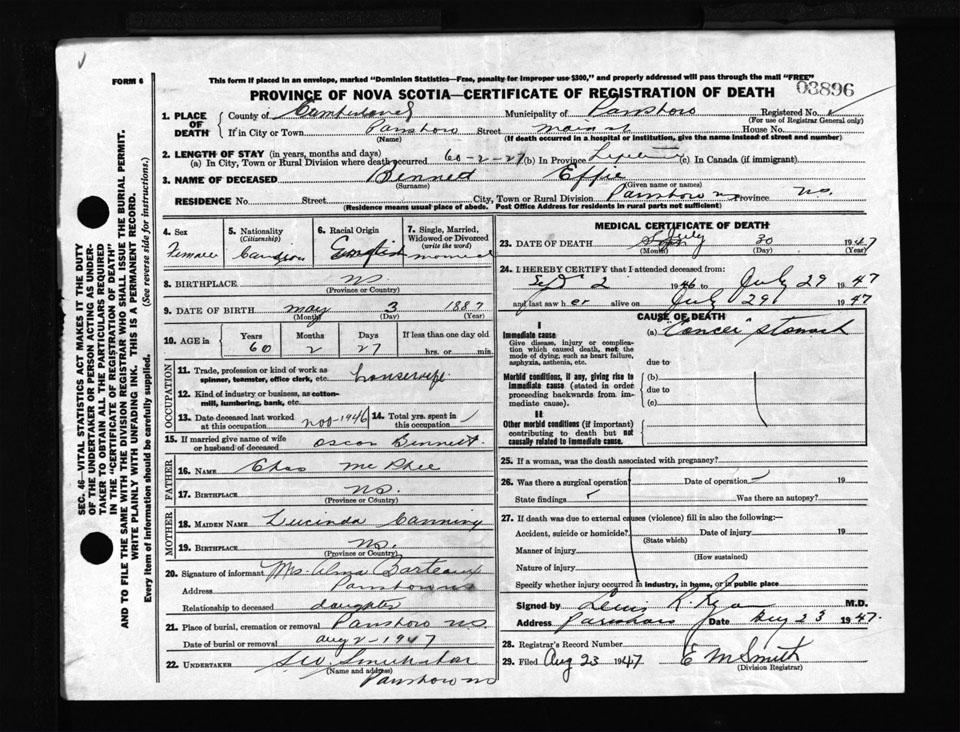 FORM 6
This form if placed in an envelope, marked "Dominion Statistics—Free, penalty for improper use $300," and properly addressed will pass through the mail "FREE"
PROVINCE OF NOVA SCOTIA—CERTIFICATE OF REGISTRATION OF DEATH
03896
SEC. 46—VITAL STATISTICS ACT MAKES IT THE DUTY
OF THE UNDERTAKER OR PERSON ACTING AS UNDER-
TAKER TO OBTAIN ALL THE PARTICULARS REQUIRED
IN THE "CERTIFICATE OF REGISTRATION OF DEATH"
AND TO FILE THE SAME WITH THE DIVISION REGISTRAR WHO SHALL ISSUE THE BURIAL PERMIT.
WRITE PLAINLY WITH UNFADING INK. THIS IS A PERMANENT RECORD.
Every item of information should be carefully supplied. (See reverse side for instructions.)
1. PLACE OF DEATH
County of Cumberland Municipality of Parrsboro Registered No.
(For use of Registrar General only)
If in City or Town Parrsboro Street main House No.
(Name) (If death occurred in a hospital or institution, give the name instead of street and number)
2. LENGTH OF STAY (in years, months and days)
(a) In City, Town or Rural Division where death occurred 60-2-27 (b) In Province Lifetime (c) In Canada (if immigrant)
3. NAME OF DECEASED Bennett Effie
(Surname) (Given name or names)
RESIDENCE No. Street City, Town or Rural Division Parrsboro NS Province NS.
(Residence means usual place of abode. Post Office Address for residents in rural parts not sufficient)
4. Sex Female
5. Nationality (Citizenship) Canadian
6. Racial Origin English
7. Single, Married, Widowed or Divorced (write the word) married
8. BIRTHPLACE NS.
(Province or Country)
9. DATE OF BIRTH may 3 1887
(Month) (Day) (Year)
10. AGE in Years Months Days If less than one day old
60 2 27 hrs. or min.
OCCUPATION
11. Trade, profession or kind of work as spinner, teamster, office clerk, etc. housewife
12. Kind of industry or business, as cotton-mill, lumbering, bank, etc.
13. Date deceased last worked at this occupation nov-1946 14. Total yrs. spent in this occupation
15. If married give name of wife or husband of deceased oscar Bennett
FATHER
16. NAME Chas McPhee
17. BIRTHPLACE NS.
(Province or Country)
MOTHER
18. MAIDEN NAME Lucinda Canning
19. BIRTHPLACE NS.
(Province or Country)
20. Signature of informant Mrs. Alma Barteaux
Address Parrsboro NS
Relationship to deceased daughter
21. Place of burial, cremation or removal Parrsboro NS
Date of burial or removal aug 2-1947
22. UNDERTAKER
(Name and address)
Parrsboro NS
MEDICAL CERTIFICATE OF DEATH
23. DATE OF DEATH July 30 1947
(Month) (Day) (Year)
24. I HEREBY CERTIFY that I attended deceased from:
Sept 2 1946 to July 29 1947
and last saw h er alive on July 29 1947
CAUSE OF DEATH
I
Immediate cause (a) "Cancer" stomach
Give disease, injury or complication which caused death, not the mode of dying, such as heart failure, asphyxia, asthenia, etc.
due to
Morbid conditions, if any, giving rise to immediate cause (stated in order proceeding backwards from immediate cause).
(b)
due to
(c)
II
Other morbid conditions (if important) contributing to death but not causally related to immediate cause.
25. If a woman, was the death associated with pregnancy?
26. Was there a surgical operation? Date of operation 19
State findings Was there an autopsy?
27. If death was due to external causes (violence) fill in also the following:—
Accident, suicide or homicide? Date of injury 19
(State which)
Manner of injury
(How sustained)
Nature of injury
Specify whether injury occurred in industry, in home, or in public place
Signed by Lewis R. Ryan M.D.
Address Parrsboro Date Aug 23 1947.
28. Registrar's Record Number
29. Filed Aug 23 1947 E M Smith
(Division Registrar)